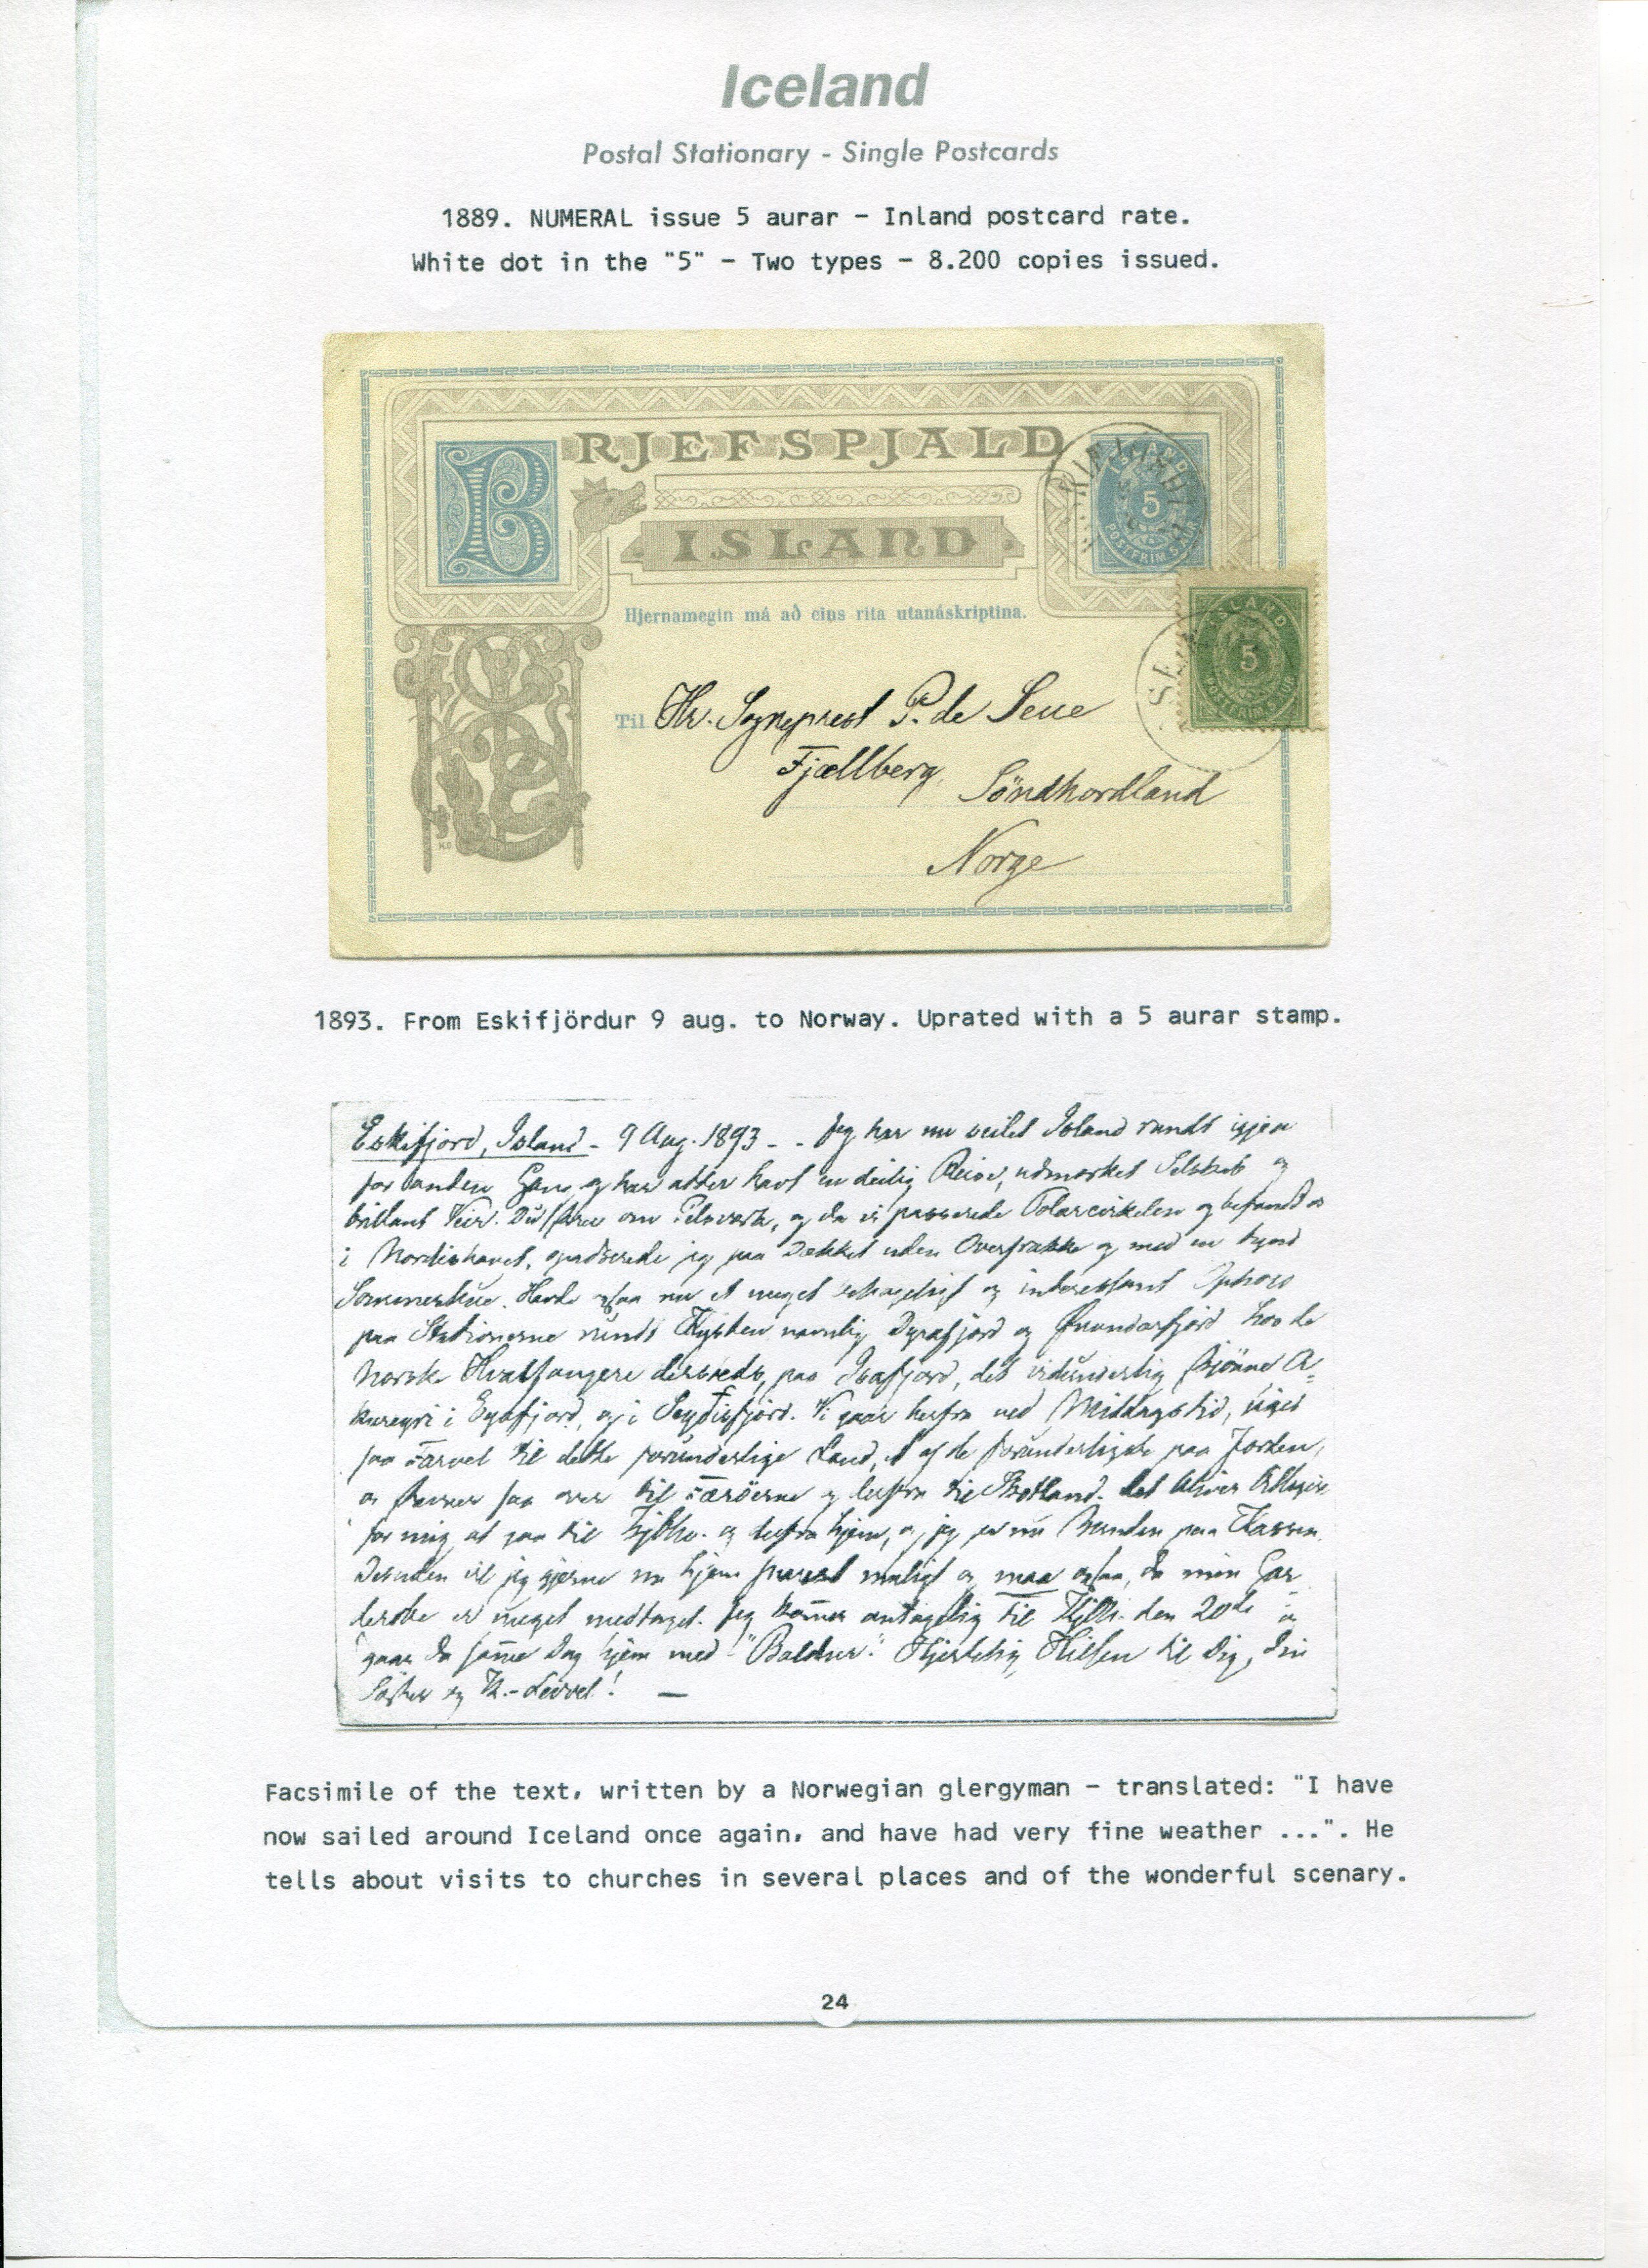 Iceland
Postal Stationary - Single Postcards
1889. NUMERAL issue 5 aurar - Inland postcard rate.
White dot in the "5" - Two types - 8.200 copies issued.
BRJEFSPJALD
ISLAND
ISLAND
5
POSTFRIM 5 AUR
Hjernamegin má að eins rita utanáskriptina.
ISLAND
5
POSTFRIM 5 AUR
Til Hr. Sogneprest P. de Seue
Fjællberg
Söndhordland
Norge
H.O.
1893. From Eskifjördur 9 aug. to Norway. Uprated with a 5 aurar stamp.
Eskifjord, Island - 9 Aug. 1893 - - Jeg har nu seilet Island rundt igjen
for anden Gang og har atter havt en deilig Reise, udmærket Selskab og
brillant Veir. og da vi passerede Polarcirkelen og befandt os
i Nordishavet, spadserede jeg paa Dækket uden Overfrakke og med en tynd
Sommerhue. Havde ogsaa nu et meget behageligt og interessant Ophold
paa Stationerne rundt Kysten navnlig Dyrafjord og Önundarfjord hos de
norske Hvalfangere dersteds, paa Isafjord, det vidunderlig skjönne A=
kureyri i Eyafjord, og i Seydisfjord. Vi gaar herfra ved Middagstid, siger
saa Farvel til dette forunderlige Land, et af de forunderligste paa Jorden,
saa over til Færöerne og derfra til Skotland. det bliver
for mig at gaa til og derfra hjem, og jeg er nu Bunden paa Kassen.
Desuden vil jeg gjerne nu hjem snarest muligt og maa ogsaa, da min Gar
derobe er meget medtaget. Jeg kommer antagelig til den 20de og
gaar da samme Dag hjem med "Baldur". Hjertelig Hilsen til Dig, din
Söster og
Facsimile of the text, written by a Norwegian glergyman - translated: "I have
now sailed around Iceland once again, and have had very fine weather ...". He
tells about visits to churches in several places and of the wonderful scenary.
24